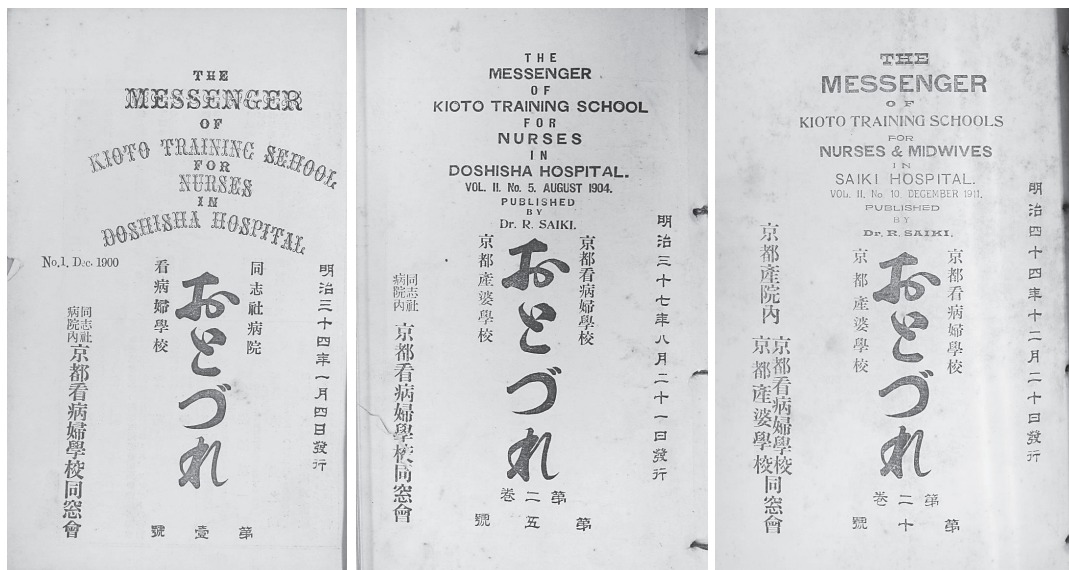 THE
MESSENGER
OF
KIOTO TRAINING SEHOOL
FOR
NURSES
IN
DOSHISHA HOSPITAL
No.1. Dec. 1900
明治三十四年一月四日發行
同志社病院
看病婦學校
おとづれ
同志社
病院內
京都看病婦學校同窓會
第壹號
THE
MESSENGER
OF
KIOTO TRAINING SCHOOL
FOR
NURSES
IN
DOSHISHA HOSPITAL.
VOL. II. No. 5. AUGUST 1904.
PUBLISHED
BY
Dr. R. SAIKI.
明治三十七年八月二十一日發行
京都看病婦學校
京都產婆學校
おとづれ
同志社
病院內
京都看病婦學校同窓會
第二卷
第五號
THE
MESSENGER
OF
KIOTO TRAINING SCHOOLS
FOR
NURSES & MIDWIVES
IN
SAIKI HOSPITAL.
VOL. II. No. 10. DECEMBER 1911.
PUBLISHED
BY
Dr. R. SAIKI.
明治四十四年十二月二十日發行
京都看病婦學校
京都產婆學校
おとづれ
京都產院內
京都看病婦學校
京都產婆學校
同窓會
第二卷
第十號